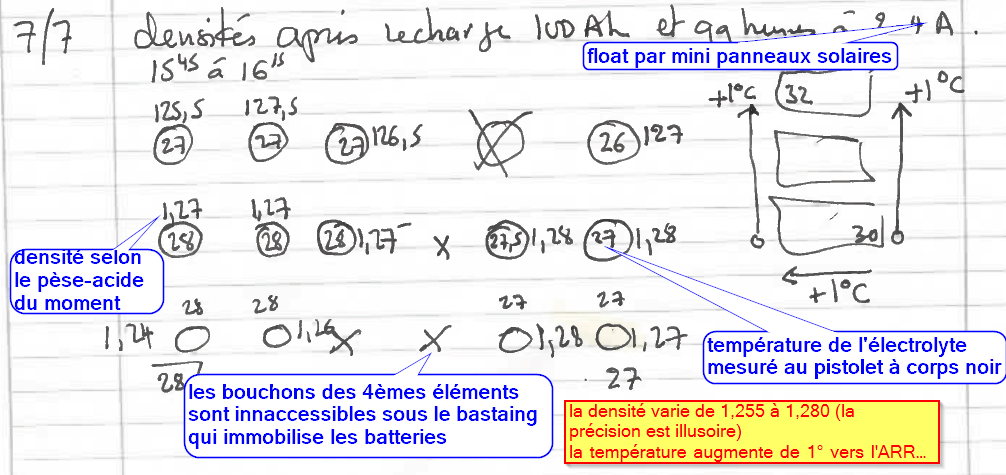 7/7 densités après recharge 100Ah et 99 heures à 2,4 A.
float par mini panneaux solaires
15⁴⁵ à 16¹⁵
+1°C 32 +1°C
125,5 127,5
27 27 27 126,5 26 127
1,27 1,27
28 28 28 1,27 x 27,5 1,28 27 1,28
30
+1°C
densité selon
le pèse-acide
du moment
28 28 27 27
1,24 1,26 x x 1,28 1,27
28 27
température de l'électrolyte
mesuré au pistolet à corps noir
les bouchons des 4èmes éléments
sont innaccessibles sous le bastaing
qui immobilise les batteries
la densité varie de 1,255 à 1,280 (la
précision est illusoire)
la température augmente de 1° vers l'ARR...